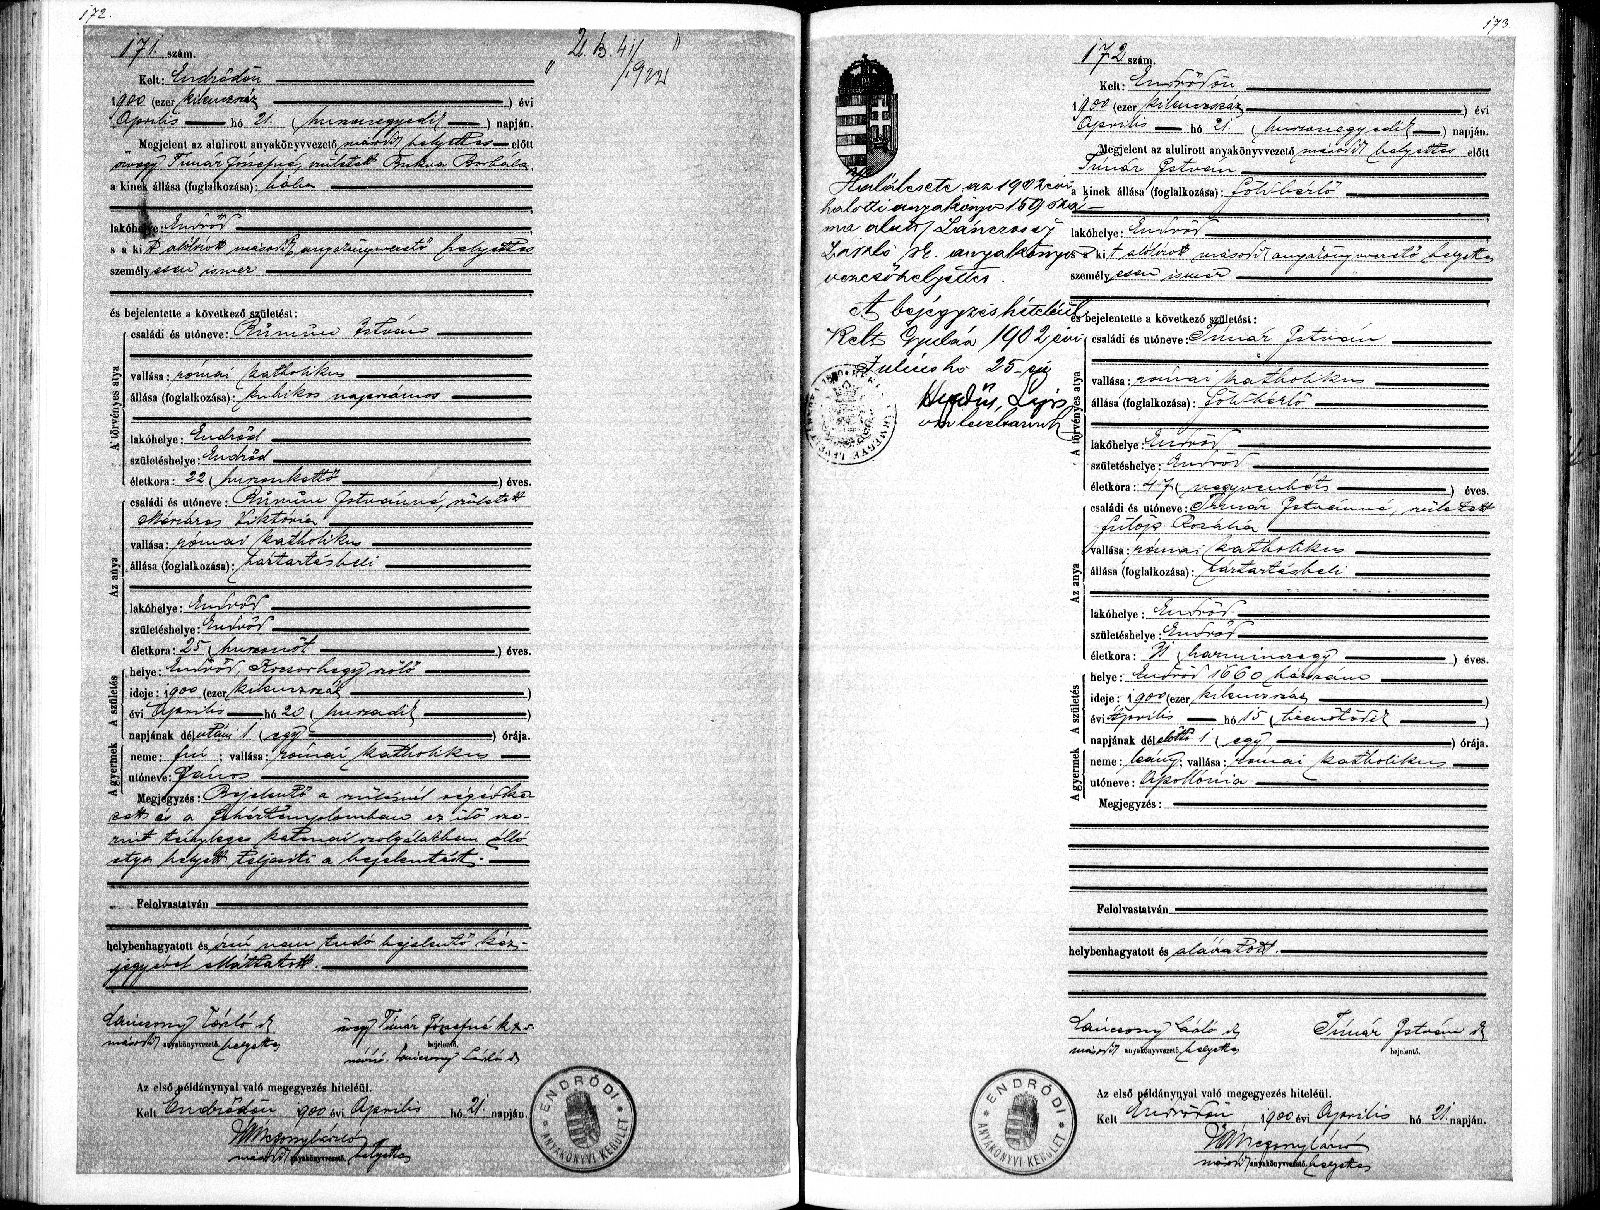 172.
171. szám.
Kelt: Endrődön
1900 (ezer kilenczszáz ) évi
április hó 21. (huszonegyedik ) napján.
Megjelent az alulirott anyakönyvvezető másodh helyettes előtt
özvegy Timár Józsefné, született Borbála
a kinek állása (foglalkozása): bába
lakóhelye: Endrőd
s a kit alólirott másodh anyakönyvvezető helyettes
személyesen ismer
és bejelentette a következő születést:
A törvényes atya
családi és utóneve: István
vallása: római katholikus
állása (foglalkozása): kubikos napszámos
lakóhelye: Endrőd
születéshelye: Endrőd
életkora: 22 (huszonkettő ) éves.
Az anya
családi és utóneve: Istvánné, született
Viktória
vallása: római katholikus
állása (foglalkozása): háztartásbeli
lakóhelye: Endrőd
születéshelye: Endrőd
életkora: 25 (huszonöt ) éves.
A születés
helye: Endrőd, szőlő
ideje: 1900 (ezer kilenczszáz )
évi április hó 20 (huszadik )
napjának délután 1 (egy ) órája.
A gyermek
neme: fiú ; vallása: római katholikus
utóneve: János
Megjegyzés: Bejelentő a szülésnél
és a az idő sze-
rint tényleges katonai szolgálatban álló
atya helyett teljesíti a bejelentést.
Felolvastatván
helybenhagyatott és írni nem tudó bejelentő kéz-
jegyével elláttatott.
Lánczony László sk
másodh anyakönyvvezető helyettes
özvegy Timár Józsefné k x v
bejelentő.
Lánczony László sk
Az első példánynyal való megegyezés hiteléül.
Kelt Endrődön 1900 évi április hó 21. napján.
Lánczony László
másodh anyakönyvvezető helyettes
ENDRŐDI
ANYAKÖNYVI KERÜLET
173
172 szám.
Kelt: Endrődön
1900 (ezer kilenczszáz ) évi
április hó 21 (huszonegyedik ) napján.
Megjelent az alulirott anyakönyvvezető másodh helyettes előtt
Timár István
a kinek állása (foglalkozása): földbérlő
lakóhelye: Endrőd
s a kit alólirott másodh anyakönyvvezető helyettes
személyesen ismer
és bejelentette a következő születést:
A törvényes atya
családi és utóneve: Timár István
vallása: római katholikus
állása (foglalkozása): földbérlő
lakóhelye: Endrőd
születéshelye: Endrőd
életkora: 47 (negyvenhét ) éves.
Az anya
családi és utóneve: Timár Istvánné, született
Rozália
vallása: római katholikus
állása (foglalkozása): háztartásbeli
lakóhelye: Endrőd
születéshelye: Endrőd
életkora: 31 (harminczegy ) éves.
A születés
helye: Endrőd 1660 házszám
ideje: 1900 (ezer kilenczszáz )
évi április hó 15 (tizenötödik )
napjának délelőtt 1 (egy ) órája.
A gyermek
neme: leány; vallása: római katholikus
utóneve: Apollónia
Megjegyzés:
Felolvastatván
helybenhagyatott és aláiratott.
Lánczony László sk
másodh anyakönyvvezető helyettes
Timár István sk
bejelentő.
Az első példánynyal való megegyezés hiteléül.
Kelt Endrődön 1900 évi április hó 21. napján.
Lánczony László
másodh anyakönyvvezető helyettes
ENDRŐDI
ANYAKÖNYVI KERÜLET
Halálesete az 1902 évi
halotti anyakönyv 159 szá-
ma alatt Lánczony
László sk. anyakönyv-
vezetőhelyettes.
A bejegyzés hiteléül
Kelt Gyulán 1902 évi
Julius hó 25-én
Lajos